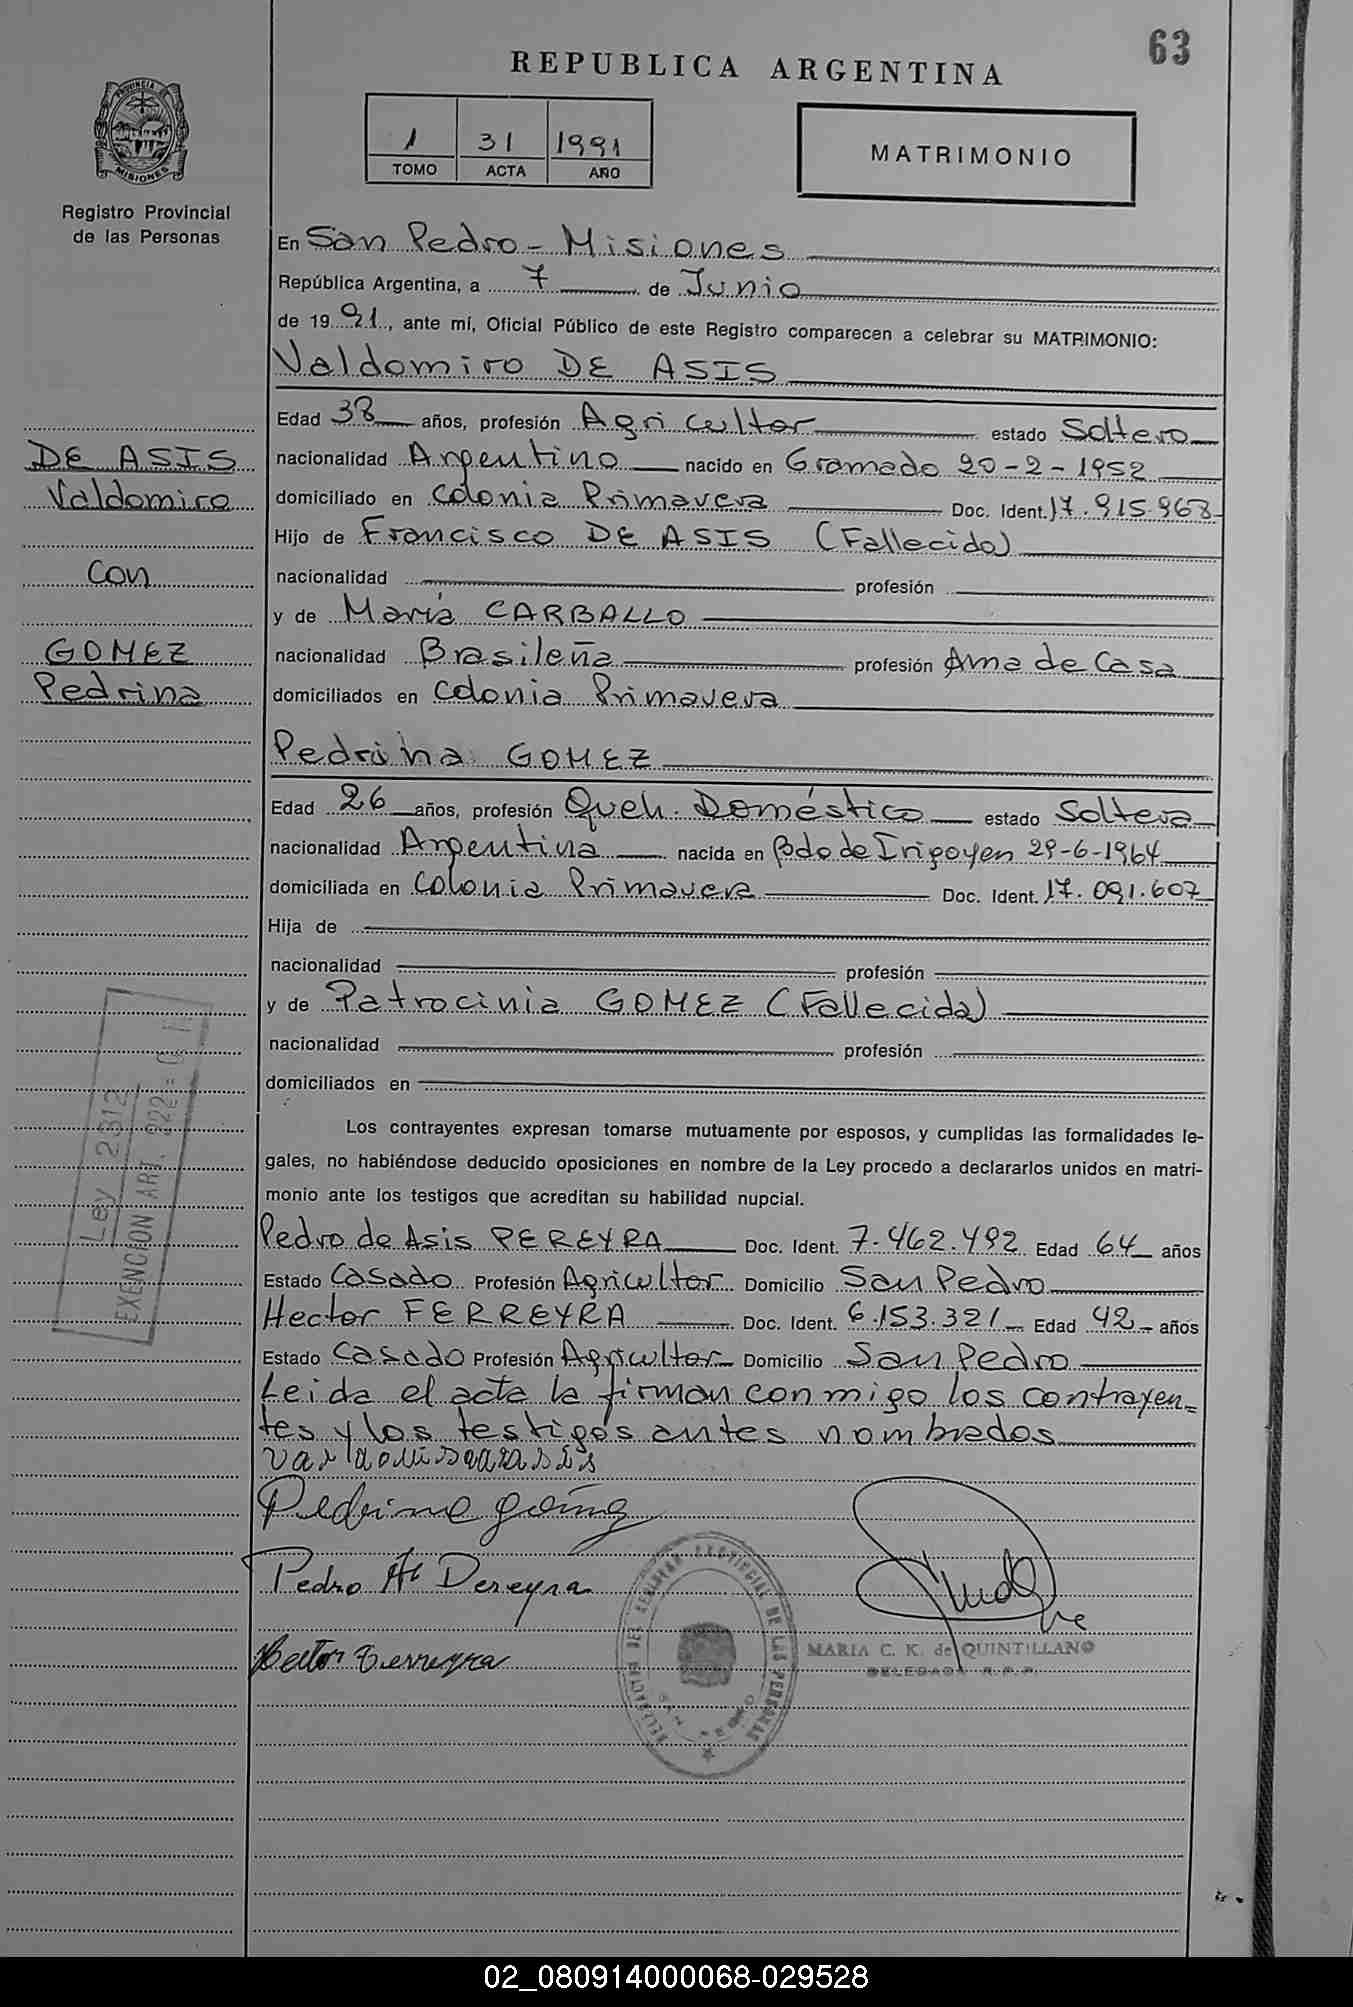 63
REPUBLICA ARGENTINA
PROVINCIA DE
MISIONES
Registro Provincial
de las Personas
1 31 1991
TOMO ACTA AÑO
MATRIMONIO
En San Pedro - Misiones
República Argentina, a 7 de Junio
de 1991, ante mí, Oficial Público de este Registro comparecen a celebrar su MATRIMONIO:
Valdomiro DE ASIS
Edad 38 años, profesión Agricultor estado Soltero
nacionalidad Argentino nacido en Gramado 20-2-1952
domiciliado en Colonia Primavera Doc. Ident. 17.915.968
Hijo de Francisco DE ASIS (Fallecido)
nacionalidad profesión
y de María CARBALLO
nacionalidad Brasileña profesión Ama de Casa
domiciliados en Colonia Primavera
DE ASIS
Valdomiro
con
GOMEZ
Pedrina
Pedrina GOMEZ
Edad 26 años, profesión Queh. Doméstico estado Soltera
nacionalidad Argentina nacida en Bdo de Irigoyen 29-6-1964
domiciliada en Colonia Primavera Doc. Ident. 17.091.607
Hija de
nacionalidad profesión
y de Patrocinia GOMEZ (Fallecida)
nacionalidad profesión
domiciliados en
Ley 2812
EXENCION ART. 222
Los contrayentes expresan tomarse mutuamente por esposos, y cumplidas las formalidades le-
gales, no habiéndose deducido oposiciones en nombre de la Ley procedo a declararlos unidos en matri-
monio ante los testigos que acreditan su habilidad nupcial.
Pedro de Asis PEREYRA Doc. Ident. 7.462.492 Edad 64 años
Estado Casado Profesión Agricultor Domicilio San Pedro
Hector FERREYRA Doc. Ident. 6.153.321 Edad 42 años
Estado Casado Profesión Agricultor Domicilio San Pedro
Leida el acta la firman con migo los contrayen=
tes y los testigos antes nombrados
Pedrina gomez
Pedro As Pereyra
Hector Ferreyra
DELEGACION DEL REGISTRO PROVINCIAL DE LAS PERSONAS
SAN PEDRO
MARIA C. K. de QUINTILLANO
DELEGADA R.P.P.
02_080914000068-029528